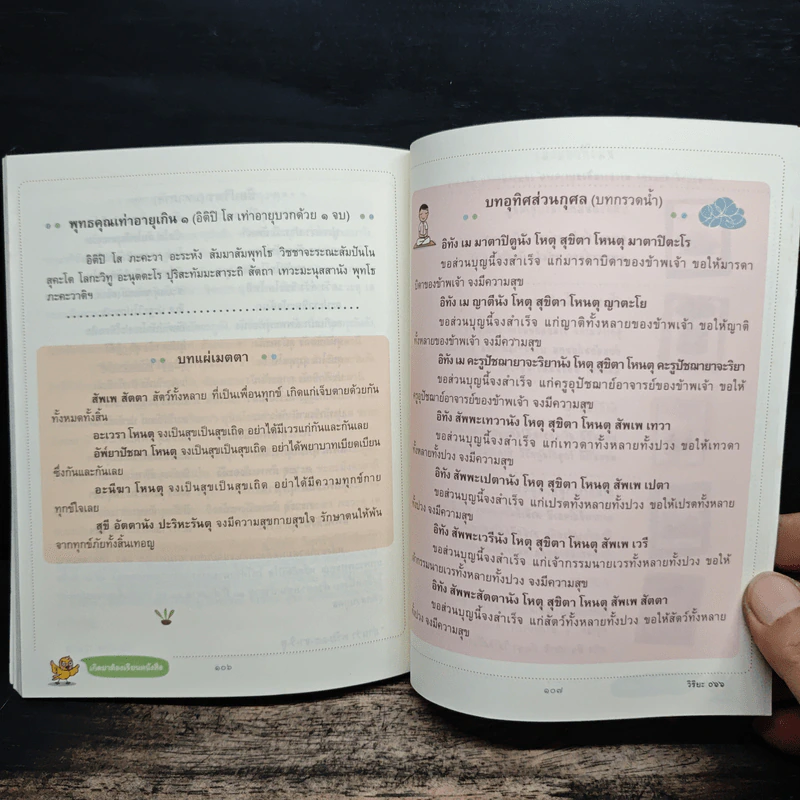 พุทธคุณเท่าอายุเกิน ๑ (อิติปิ โส เท่าอายุบวกด้วย ๑ จบ)
อิติปิ โส ภะคะวา อะระหัง สัมมาสัมพุทโธ วิชชาจะระณะสัมปันโน
สุคะโต โลกะวิทู อะนุตตะโร ปุริสะทัมมะสาระถิ สัตถา เทวะมะนุสสานัง พุทโธ
ภะคะวาติฯ
บทแผ่เมตตา
สัพเพ สัตตา สัตว์ทั้งหลาย ที่เป็นเพื่อนทุกข์ เกิดแก่เจ็บตายด้วยกัน
ทั้งหมดทั้งสิ้น
อะเวรา โหนตุ จงเป็นสุขเป็นสุขเถิด อย่าได้มีเวรแก่กันและกันเลย
อัพ๎ยาปัชฌา โหนตุ จงเป็นสุขเป็นสุขเถิด อย่าได้พยาบาทเบียดเบียน
ซึ่งกันและกันเลย
อะนีฆา โหนตุ จงเป็นสุขเป็นสุขเถิด อย่าได้มีความทุกข์กาย
ทุกข์ใจเลย
สุขี อัตตานัง ปะริหะรันตุ จงมีความสุขกายสุขใจ รักษาตนให้พ้น
จากทุกข์ภัยทั้งสิ้นเทอญ
เกิดมาต้องเรียนหนังสือ
๑๐๖
บทอุทิศส่วนกุศล (บทกรวดน้ำ)
อิทัง เม มาตาปิตูนัง โหตุ สุขิตา โหนตุ มาตาปิตะโร
ขอส่วนบุญนี้จงสำเร็จ แก่มารดาบิดาของข้าพเจ้า ขอให้มารดา
บิดาของข้าพเจ้า จงมีความสุข
อิทัง เม ญาตีนัง โหตุ สุขิตา โหนตุ ญาตะโย
ขอส่วนบุญนี้จงสำเร็จ แก่ญาติทั้งหลายของข้าพเจ้า ขอให้ญาติ
ทั้งหลายของข้าพเจ้า จงมีความสุข
อิทัง เม คะรุปัชฌายาจะริยานัง โหตุ สุขิตา โหนตุ คะรุปัชฌายาจะริยา
ขอส่วนบุญนี้จงสำเร็จ แก่ครูอุปัชฌาย์อาจารย์ของข้าพเจ้า ขอให้
ครูอุปัชฌาย์อาจารย์ของข้าพเจ้า จงมีความสุข
อิทัง สัพพะเทวานัง โหตุ สุขิตา โหนตุ สัพเพ เทวา
ขอส่วนบุญนี้จงสำเร็จ แก่เทวดาทั้งหลายทั้งปวง ขอให้เทวดา
ทั้งหลายทั้งปวง จงมีความสุข
อิทัง สัพพะเปตานัง โหตุ สุขิตา โหนตุ สัพเพ เปตา
ขอส่วนบุญนี้จงสำเร็จ แก่เปรตทั้งหลายทั้งปวง ขอให้เปรตทั้งหลาย
ทั้งปวง จงมีความสุข
อิทัง สัพพะเวรีนัง โหตุ สุขิตา โหนตุ สัพเพ เวรี
ขอส่วนบุญนี้จงสำเร็จ แก่เจ้ากรรมนายเวรทั้งหลายทั้งปวง ขอให้
เจ้ากรรมนายเวรทั้งหลายทั้งปวง จงมีความสุข
อิทัง สัพพะสัตตานัง โหตุ สุขิตา โหนตุ สัพเพ สัตตา
ขอส่วนบุญนี้จงสำเร็จ แก่สัตว์ทั้งหลายทั้งปวง ขอให้สัตว์ทั้งหลาย
ทั้งปวง จงมีความสุข
๑๐๗
วิริยะ ๐๖๖